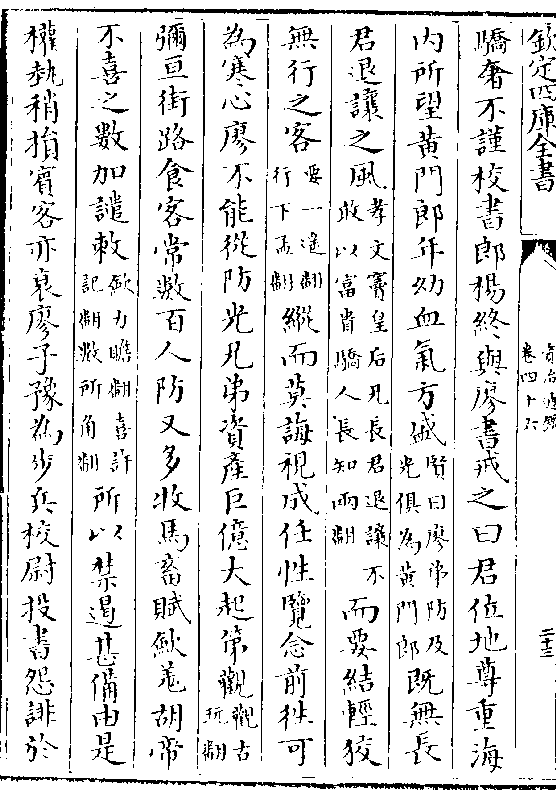 欽定四庫全書
資治通鑑
卷四十六
二十三
驕奢不謹校書郎楊終與廖書戒之曰君位地尊重海
内所望黄門郎年幼血氣方盛賢曰廖弟防及光俱為黄門郎既無長
君退讓之風孝文竇皇后兄長君退讓不敢以富貴驕人長知兩翻而要結輕狡
無行之客要一遥翻行下孟翻縱而莫誨視成任性覽念前往可
為寒心廖不能從防光兄弟資產巨億大起第觀觀古玩翻
彌亘街路食客常數百人防又多牧馬畜賦歛羌胡帝
不喜之數加譴敕歛力贍翻喜許記翻數所角翻所以禁遏甚備由是
權埶稍損賓客亦衰廖子豫為步兵校尉投書怨誹於